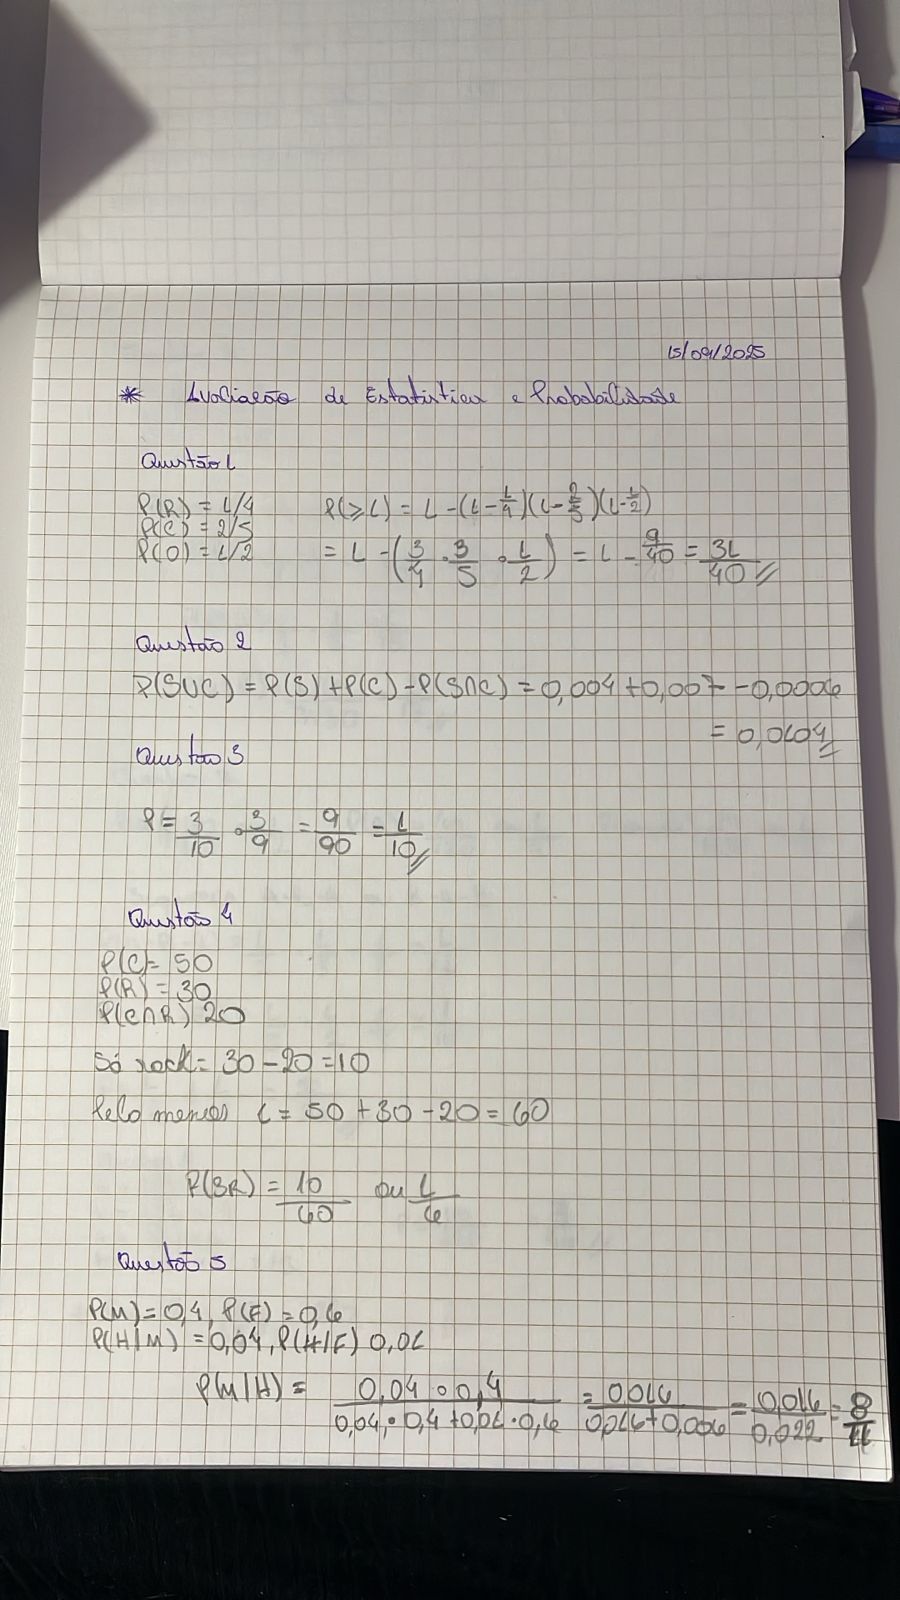 15/09/2025
* Avaliação de Estatística e Probabilidade
Questão 1
P(R) = 1/4 P(≥1) = 1-(1-1/4)(1-2/5)(1-1/2)
P(C) = 2/5
P(O) = 1/2 = 1-(3/4 · 3/5 · 1/2) = 1 - 9/40 = 31/40
Questão 2
P(SUC) = P(S) + P(C) - P(S∩C) = 0,004 + 0,007 - 0,0006
= 0,0104
Questão 3
P = 3/10 · 3/9 = 9/90 = 1/10
Questão 4
P(C)= 50
P(R) = 30
P(C∩R) 20
Só rock = 30 - 20 = 10
Pelo menos 1 = 50 + 30 - 20 = 60
P(SR) = 10/60 ou 1/6
Questão 5
P(M) = 0,4, P(F) = 0,6
P(H/M) = 0,04, P(H/F) 0,01
P(M/H) = 0,04 · 0,4 / 0,04 · 0,4 + 0,01 · 0,6 = 0,016 / 0,016 + 0,006 = 0,016 / 0,022 = 8/11